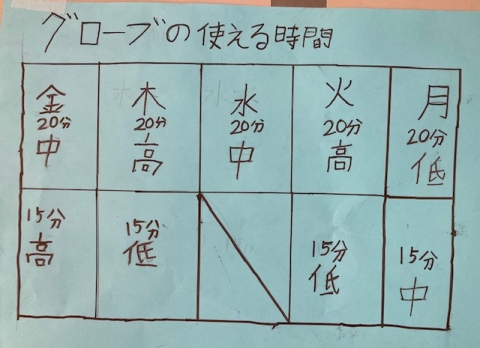 グローブの使える時間
金
20分
中
木
20分
高
水
20分
中
火
20分
高
月
20分
低
15分
高
15分
低
15分
低
15分
中